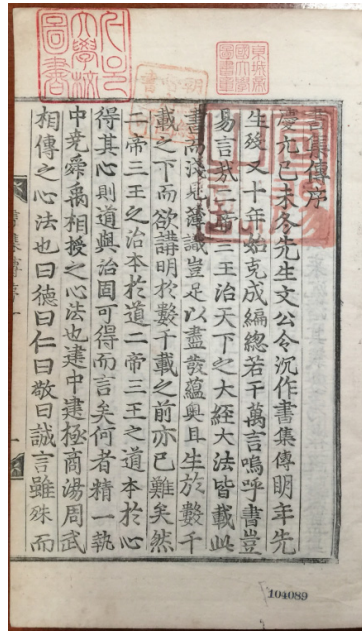 書集傳序
慶元己未冬先生文公令沉作書集傳明年先
生殁又十年始克成編總若干萬言嗚呼書豈
易言哉二帝三王治天下之大經大法皆載此
書而淺見薄識豈足以盡發蘊奧且生於數千
載之下而欲講明於數千載之前亦已難矣然
二帝三王之治本於道二帝三王之道本於心
得其心則道與治固可得而言矣何者精一執
中堯舜禹相授之心法也建中建極商湯周武
相傳之心法也曰德曰仁曰敬曰誠言雖殊而
104089